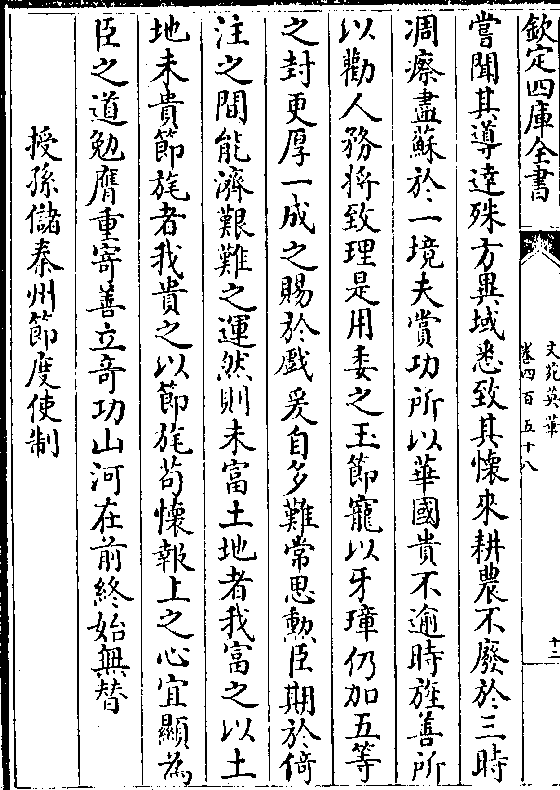 欽定四庫全書
文苑英華
卷四百五十八
十二
嘗聞其導達殊方異域悉致其懷來耕農不廢於三時
凋瘵盡蘇於一境夫賞功所以華國貴不逾時旌善所
以勸人務將致理是用委之玉節寵以牙璋仍加五等
之封更厚一成之賜於戲爰自多難常思勲臣期於倚
注之間能濟艱難之運然則未富土地者我富之以土
地未貴節旄者我貴之以節旄茍懷報上之心宜顯為
臣之道勉膺重寄善立竒功山河在前終始無替
授孫儲秦州節度使制